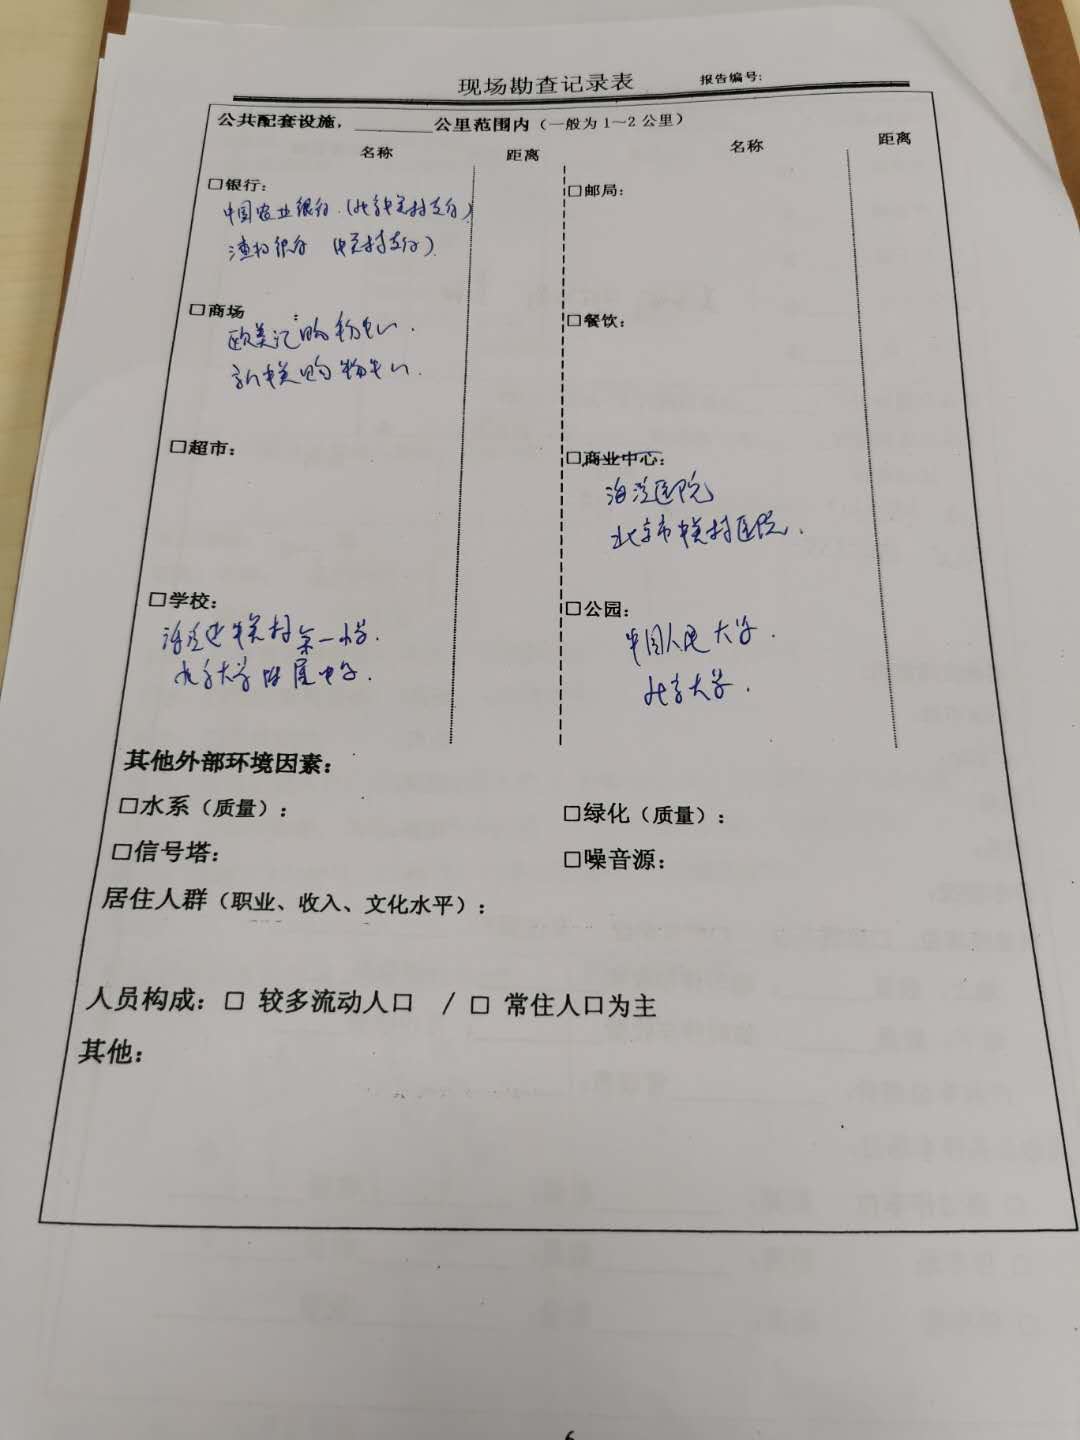 现场勘查记录表 报告编号:
公共配套设施,________公里范围内（一般为1～2公里）
名称 距离 名称 距离
□银行:
中国农业银行（北京中关村支行）
渣打银行（中关村支行）
□邮局:
□商场:
欧美汇购物中心.
新中关购物中心.
□餐饮:
□超市:
□商业中心:
海淀医院
北京市中关村医院.
□学校:
海淀区中关村第一小学.
北京大学附属中学.
□公园:
中国人民大学.
北京大学.
其他外部环境因素:
□水系（质量）: □绿化（质量）:
□信号塔: □噪音源:
居住人群（职业、收入、文化水平）:
人员构成: □ 较多流动人口 / □ 常住人口为主
其他:
6